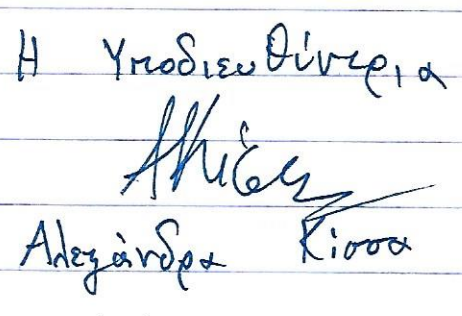 Η Υποδιευθύντρια
Αλεξάνδρα Κίσσα